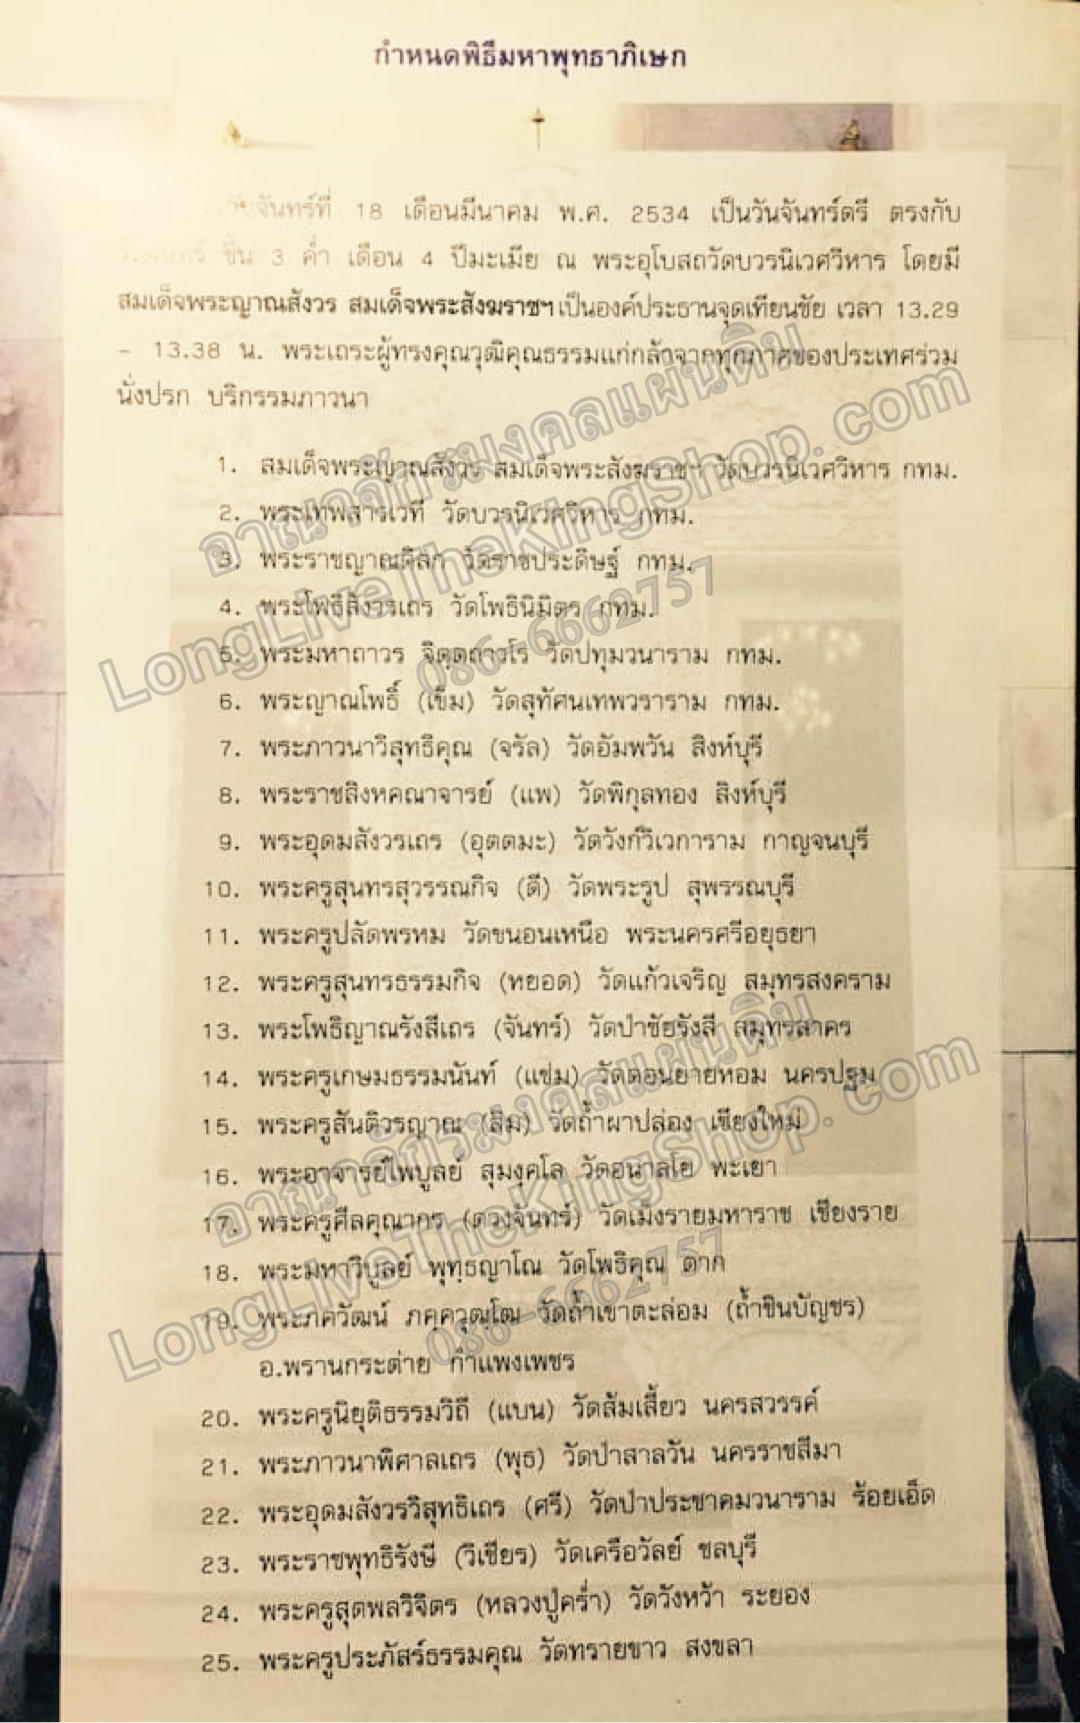 กำหนดพิธีมหาพุทธาภิเษก
วันจันทร์ที่ 18 เดือนมีนาคม พ.ศ. 2534 เป็นวันจันทร์ตรี ตรงกับ
วันจันทร์ ขึ้น 3 ค่ำ เดือน 4 ปีมะเมีย ณ พระอุโบสถวัดบวรนิเวศวิหาร โดยมี
สมเด็จพระญาณสังวร สมเด็จพระสังฆราชฯ เป็นองค์ประธานจุดเทียนชัย เวลา 13.29
- 13.38 น. พระเถระผู้ทรงคุณวุฒิคุณธรรมแก่กล้าจากทุกภาคของประเทศร่วม
นั่งปรก บริกรรมภาวนา
1. สมเด็จพระญาณสังวร สมเด็จพระสังฆราชฯ วัดบวรนิเวศวิหาร กทม.
2. พระเทพสารเวที วัดบวรนิเวศวิหาร กทม.
3. พระราชญาณดิลก วัดราชประดิษฐ์ กทม.
4. พระโพธิสังวรเถร วัดโพธินิมิตร กทม.
5. พระมหาถาวร จิตฺตถาวโร วัดปทุมวนาราม กทม.
6. พระญาณโพธิ์ (เข็ม) วัดสุทัศนเทพวราราม กทม.
7. พระภาวนาวิสุทธิคุณ (จรัล) วัดอัมพวัน สิงห์บุรี
8. พระราชสิงหคณาจารย์ (แพ) วัดพิกุลทอง สิงห์บุรี
9. พระอุดมสังวรเถร (อุตตมะ) วัดวังก์วิเวการาม กาญจนบุรี
10. พระครูสุนทรสุวรรณกิจ (ดี) วัดพระรูป สุพรรณบุรี
11. พระครูปลัดพรหม วัดขนอนเหนือ พระนครศรีอยุธยา
12. พระครูสุนทรธรรมกิจ (หยอด) วัดแก้วเจริญ สมุทรสงคราม
13. พระโพธิญาณรังสีเถร (จันทร์) วัดป่าชัยรังสี สมุทรสาคร
14. พระครูเกษมธรรมนันท์ (แช่ม) วัดดอนยายหอม นครปฐม
15. พระครูสันติวรญาณ (สิม) วัดถ้ำผาปล่อง เชียงใหม่
16. พระอาจารย์ไพบูลย์ สุมงฺคโล วัดอนาลโย พะเยา
17. พระครูศีลคุณากร (ดวงจันทร์) วัดเม็งรายมหาราช เชียงราย
18. พระมหาวิบูลย์ พุทฺธญาโณ วัดโพธิคุณ ตาก
19. พระภควัฒน์ ภคฺควุฒฺโฒ วัดถ้ำเขาตะล่อม (ถ้ำชินบัญชร)
อ.พรานกระต่าย กำแพงเพชร
20. พระครูนิยุติธรรมวิถี (แบน) วัดส้มเสี้ยว นครสวรรค์
21. พระภาวนาพิศาลเถร (พุธ) วัดป่าสาลวัน นครราชสีมา
22. พระอุดมสังวรวิสุทธิเถร (ศรี) วัดป่าประชาคมวนาราม ร้อยเอ็ด
23. พระราชพุทธิรังษี (วิเชียร) วัดเครือวัลย์ ชลบุรี
24. พระครูสุตพลวิจิตร (หลวงปู่คร่ำ) วัดวังหว้า ระยอง
25. พระครูประภัสร์ธรรมคุณ วัดทรายขาว สงขลา
อาณาจักรมงคลแผ่นดิน
LongLiveTheKingShop. com
086-6662757
อาณาจักรมงคลแผ่นดิน
LongLiveTheKingShop. com
086-6662757